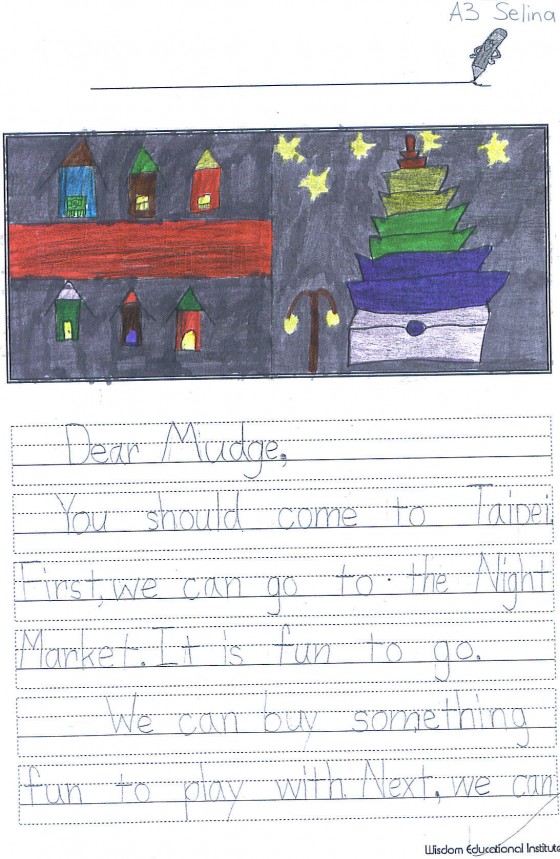 A3 Selina
Dear Mudge,
You should come to Taipei
First, we can go to the Night
Market. It is fun to go.
We can buy something
fun to play with. Next, we can
Wisdom Educational Institute